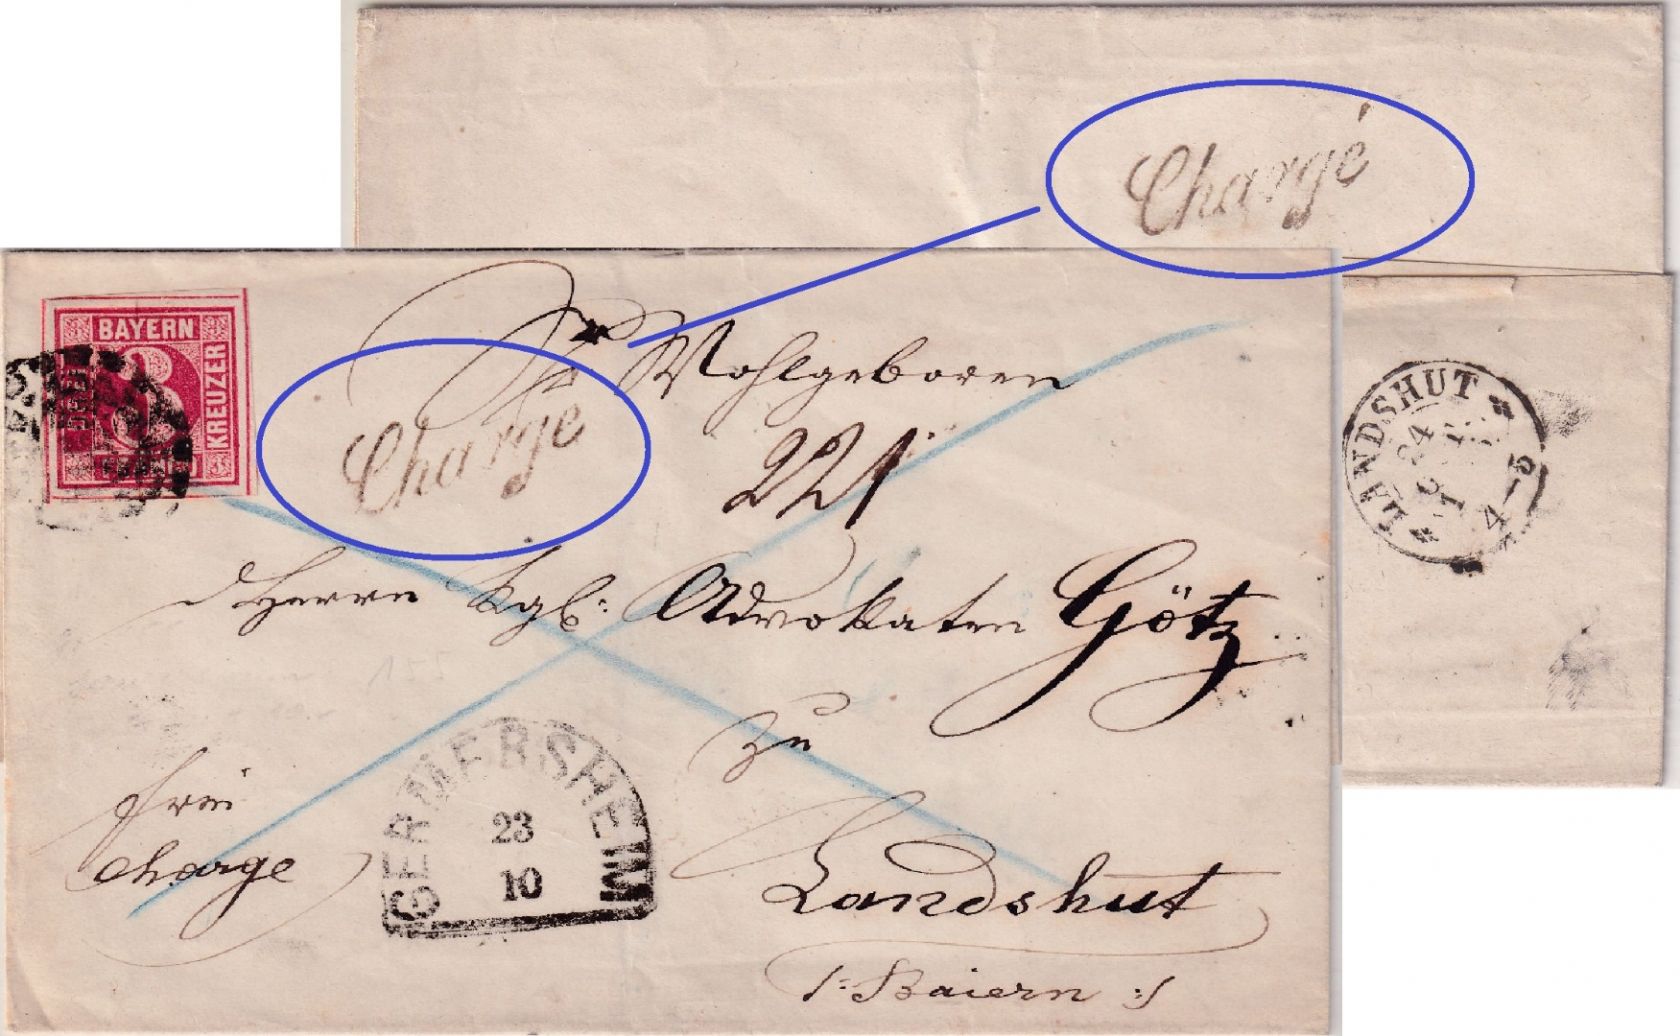 Chargé
BAYERN
KREUZER
Sr Wohlgeboren
Chargé
221
d Herrn Kgl: Advokaten Götz
zu
frei
charge
Landshut
/: Baiern :/
GERMERSHEIM
23
10
LANDSHUT
24
4-5